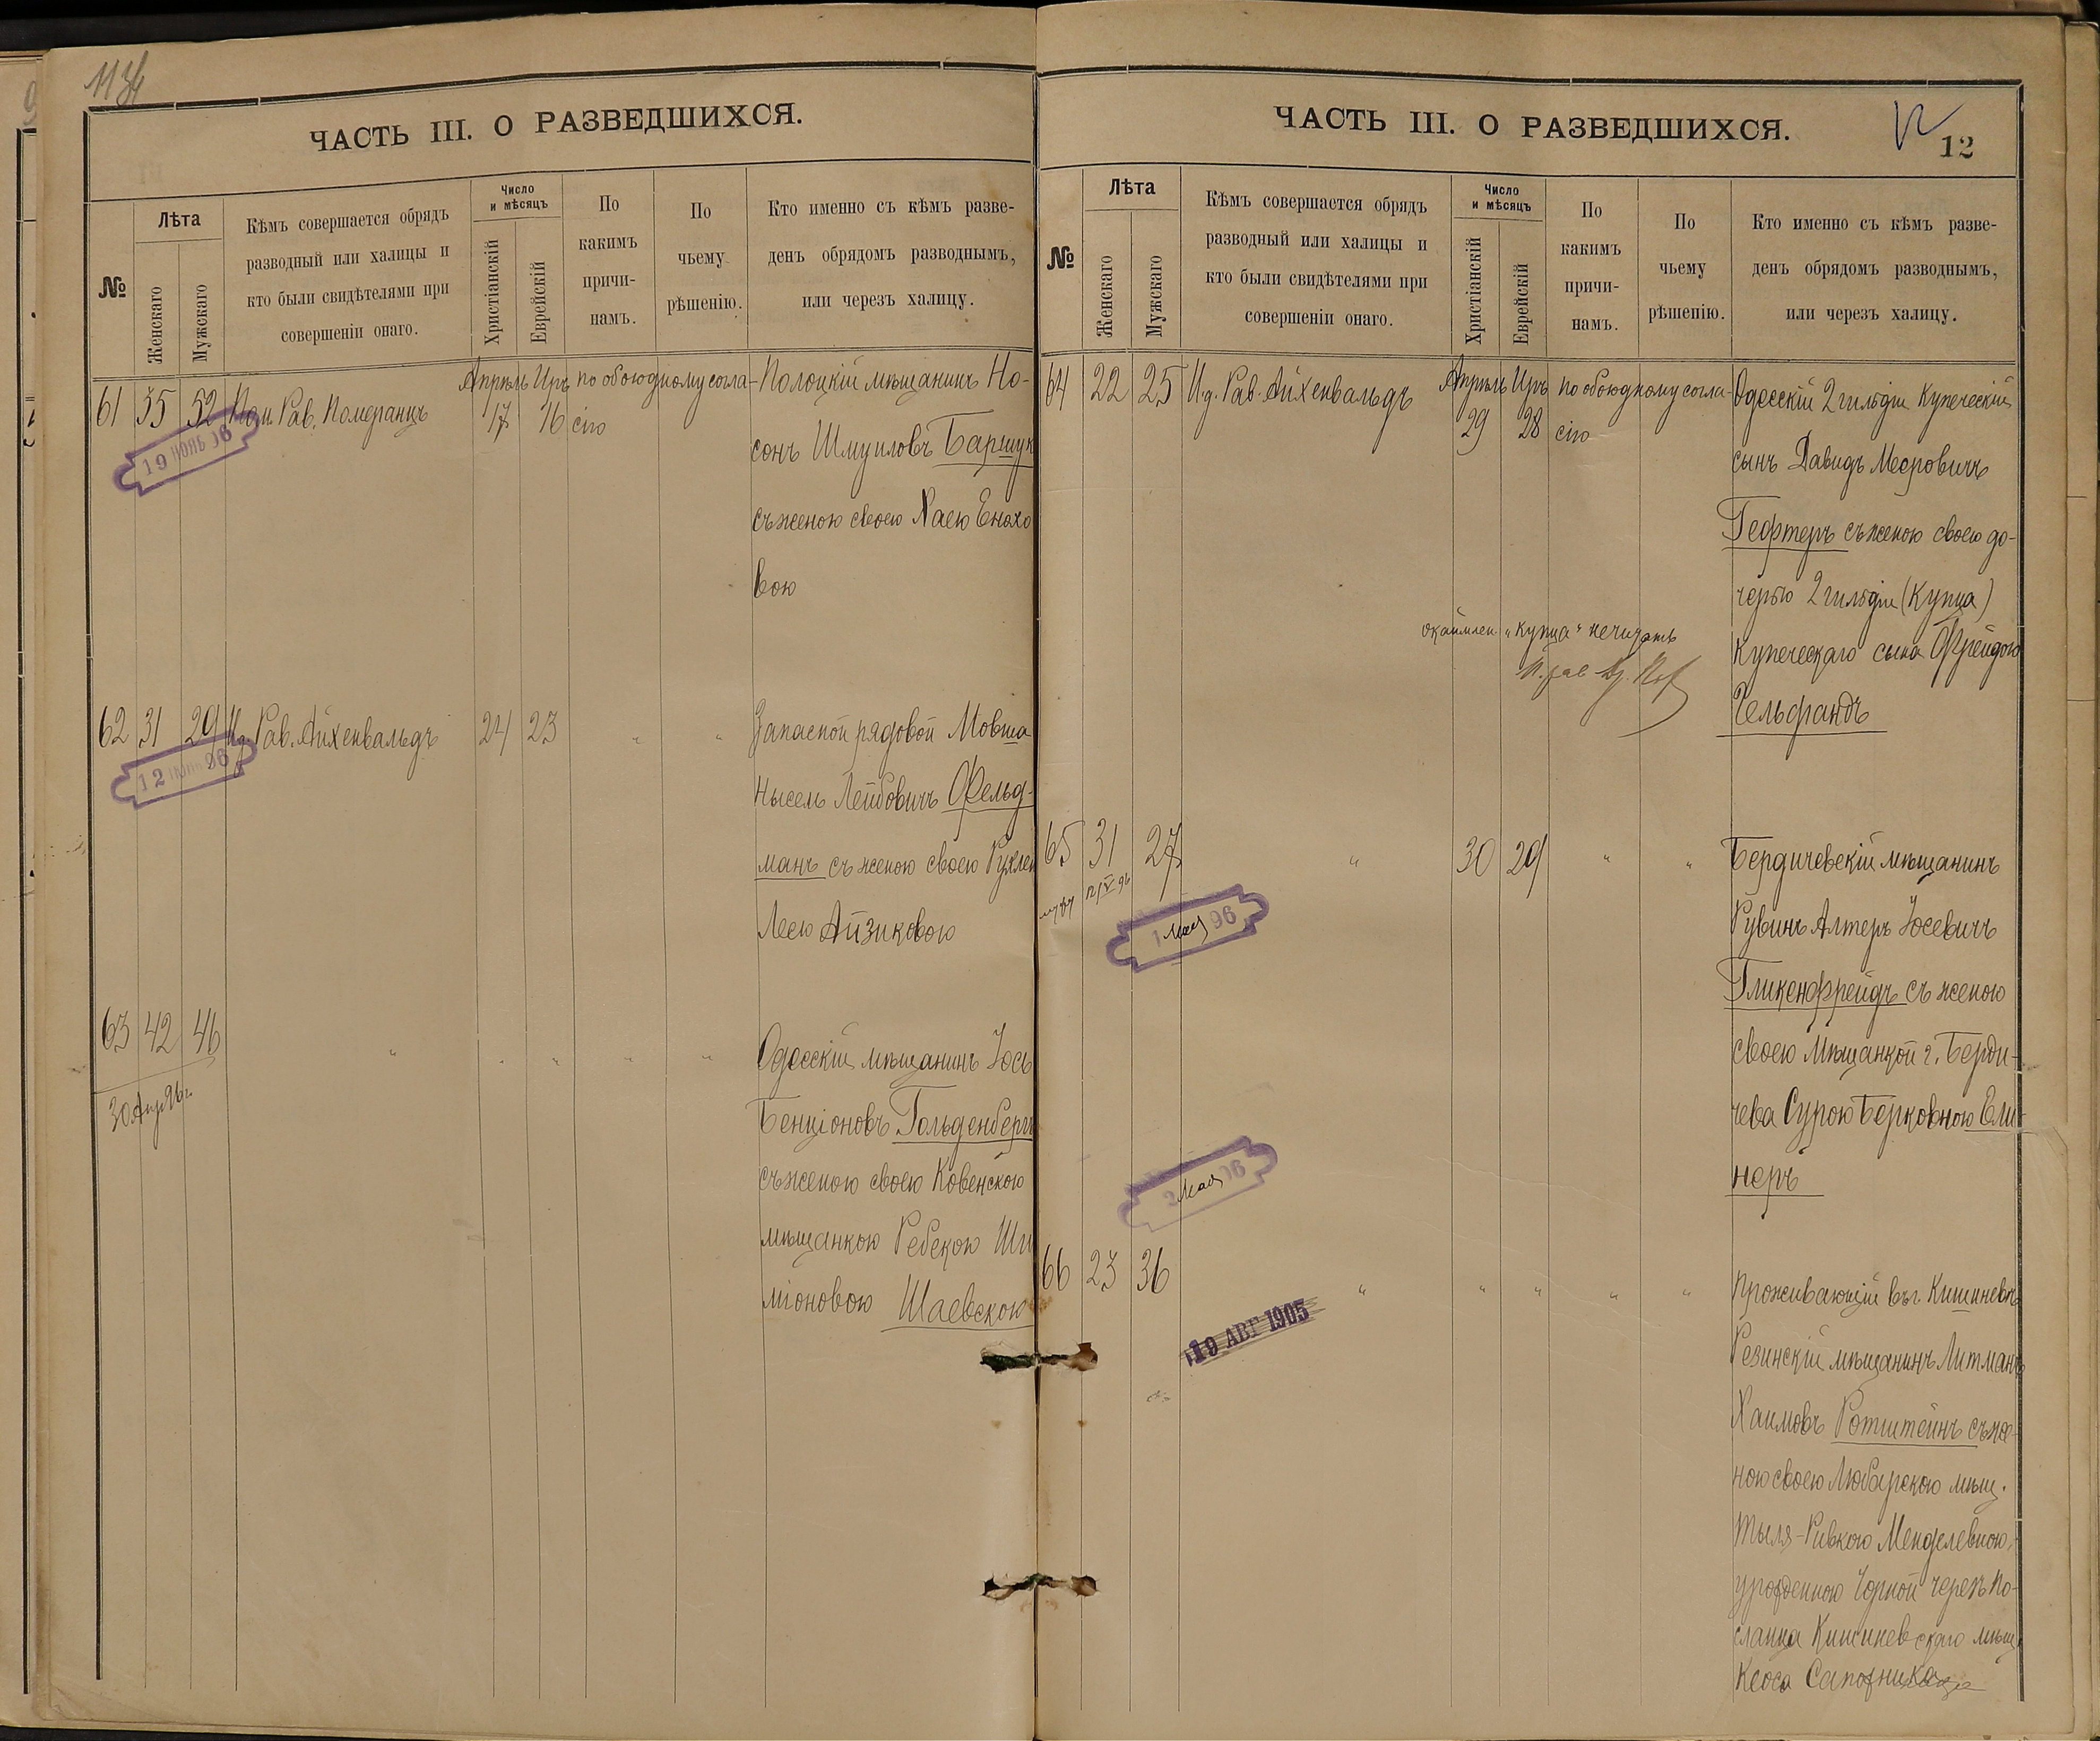 ЧАСТЬ III. О РАЗВЕДШИХСЯ.
№
Лѣта
Женскаго
Мужскаго
Кѣмъ совершается обрядъ
разводный или халицы и
кто были свидѣтелями при
совершеніи онаго.
Число
и мѣсяцъ
Христіанскій
Еврейскій
По
какимъ
причи-
намъ.
По
чьему
рѣшенію.
Кто именно съ кѣмъ разве-
денъ обрядомъ разводнымъ,
или черезъ халицу.
61 35 52 Пом. Рав. Померанцъ Апрѣль Иръ по обоюдному согла- Полоцкій мѣщанинъ Но-
17 16 сію
19 ІЮНЬ 96
сонъ Шмуиловъ Баршук
съ женою своею Хаею Енохо
вою
62 31 29 И.д. Рав. Айхенвальдъ 24 23 " " Запасной рядовой Мовша
12 96
Нысель Лейбовичъ Фельд-
манъ съ женою своею Рухлей
Леею Айзиковою
63 42 46 " " " " " Одесскій мѣщанинъ Іось
30 Апр 96 г.
Бенціоновъ Гольденберг
съ женою своею Ковенскою
мѣщанкою Ребекою Ши
міоновою Шаевскою
ЧАСТЬ III. О РАЗВЕДШИХСЯ.
12
№
Лѣта
Женскаго
Мужскаго
Кѣмъ совершается обрядъ
разводный или халицы и
кто были свидѣтелями при
совершеніи онаго.
Число
и мѣсяцъ
Христіанскій
Еврейскій
По
какимъ
причи-
намъ.
По
чьему
рѣшенію.
Кто именно съ кѣмъ разве-
денъ обрядомъ разводнымъ,
или черезъ халицу.
64 22 25 И.д. Рав. Айхенвальдъ Апрѣль Иръ по обоюдному согла- Одесскій 2 гильдіи купеческій
29 28 сію
сынъ Давидъ Мееровичъ
Гефтеръ съ женою своею до-
черью 2 гильдіи (купца)
окаймлен. "купца" нечитать
купеческаго сына Фрейдою
Гельфандъ
65 31 27 " 30 29 " " Бердичевскій мѣщанинъ
12/V 96
1 Мая 96
Рувинъ Алтеръ Іосевичъ
Гликенфрейдъ съ женою
своею мѣщанкой г. Берди-
чева Сурою Берковною Ели-
неръ
2 Мая 96
66 23 36 " " " " " Проживающій въ г. Кишиневѣ
19 АВГ 1905
Резинскій мѣщанинъ Литманъ
Хаимовъ Ротштейнъ съ же-
ною своею Любарскою мѣщ.
Тыля-Ривкою Менделевною,
урожденною Чорной черезъ по-
сланца Кишиневскаго мѣщ.
Кеоса Сапожника